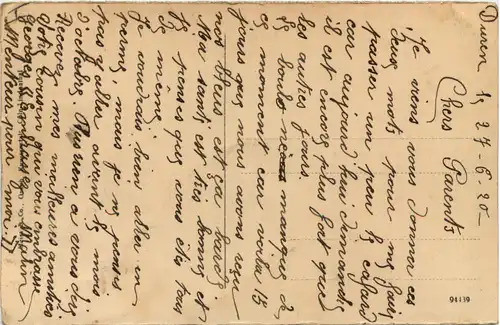 Duren le 27-6-20-
Chers Parents
Je viens vous donner ces
deux mots pour me faire
passer un peu le cafard
car aujourd'hui dimanche
il est encore plus fort que
les autres jours.
le boulot ne manque
ce moment car voila 15
jours que nous avons reçu
nos bleus est ça barde,
Ma santé est très bonne et
je pense que vous êtes tous
de meme.
Je voudrais bien aller en
perme, mais je ne pense
pas y aller avant le mois
d'octobre. Rien a vous dire
Recevez mes meilleures amitiés
Votre cousin qui vous embrasse
Georges
94139